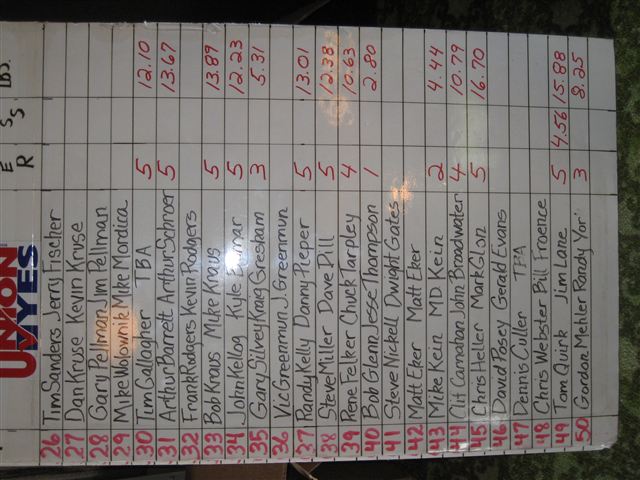 UNION YES
E R S S LBS.
26 Tim Sanders Jerry Fischer
27 Dan Kruse Kevin Kruse
28 Gary Pellman Jim Pellman
29 Mike Wolownik Mike Mordica
30 Tim Gallagher TBA 5 12.10
31 Arthur Barrett Arthur Schroer 5 13.67
32 Frank Rodgers Kevin Rodgers
33 Bob Kraus Mike Kraus 5 13.89
34 John Kellog Kyle 5 12.23
35 Gary Silvey Kraig Gresham 3 5.31
36 Vic Greenmun J. Greenmun
37 Randy Kelly Danny Pieper 5 13.01
38 Steve Miller Dave Dill 5 12.38
39 Rene Felker Chuck Tarpley 4 10.63
40 Bob Glenn Jesse Thompson 1 2.80
41 Steve Nickell Dwight Gates
42 Matt Eker Matt Eker
43 Mike Kein MD Kein 2 4.44
44 Clit Carnahan John Broadwater 4 10.79
45 Chris Heller Mark Glon 5 16.70
46 David Posey Gerald Evans
47 Dennis Culler TBA
48 Chris Webster Bill Froence
49 Tom Quirk Jim Lane 5 4.56 15.88
50 Gordon Mehler Randy Yor 3 8.25